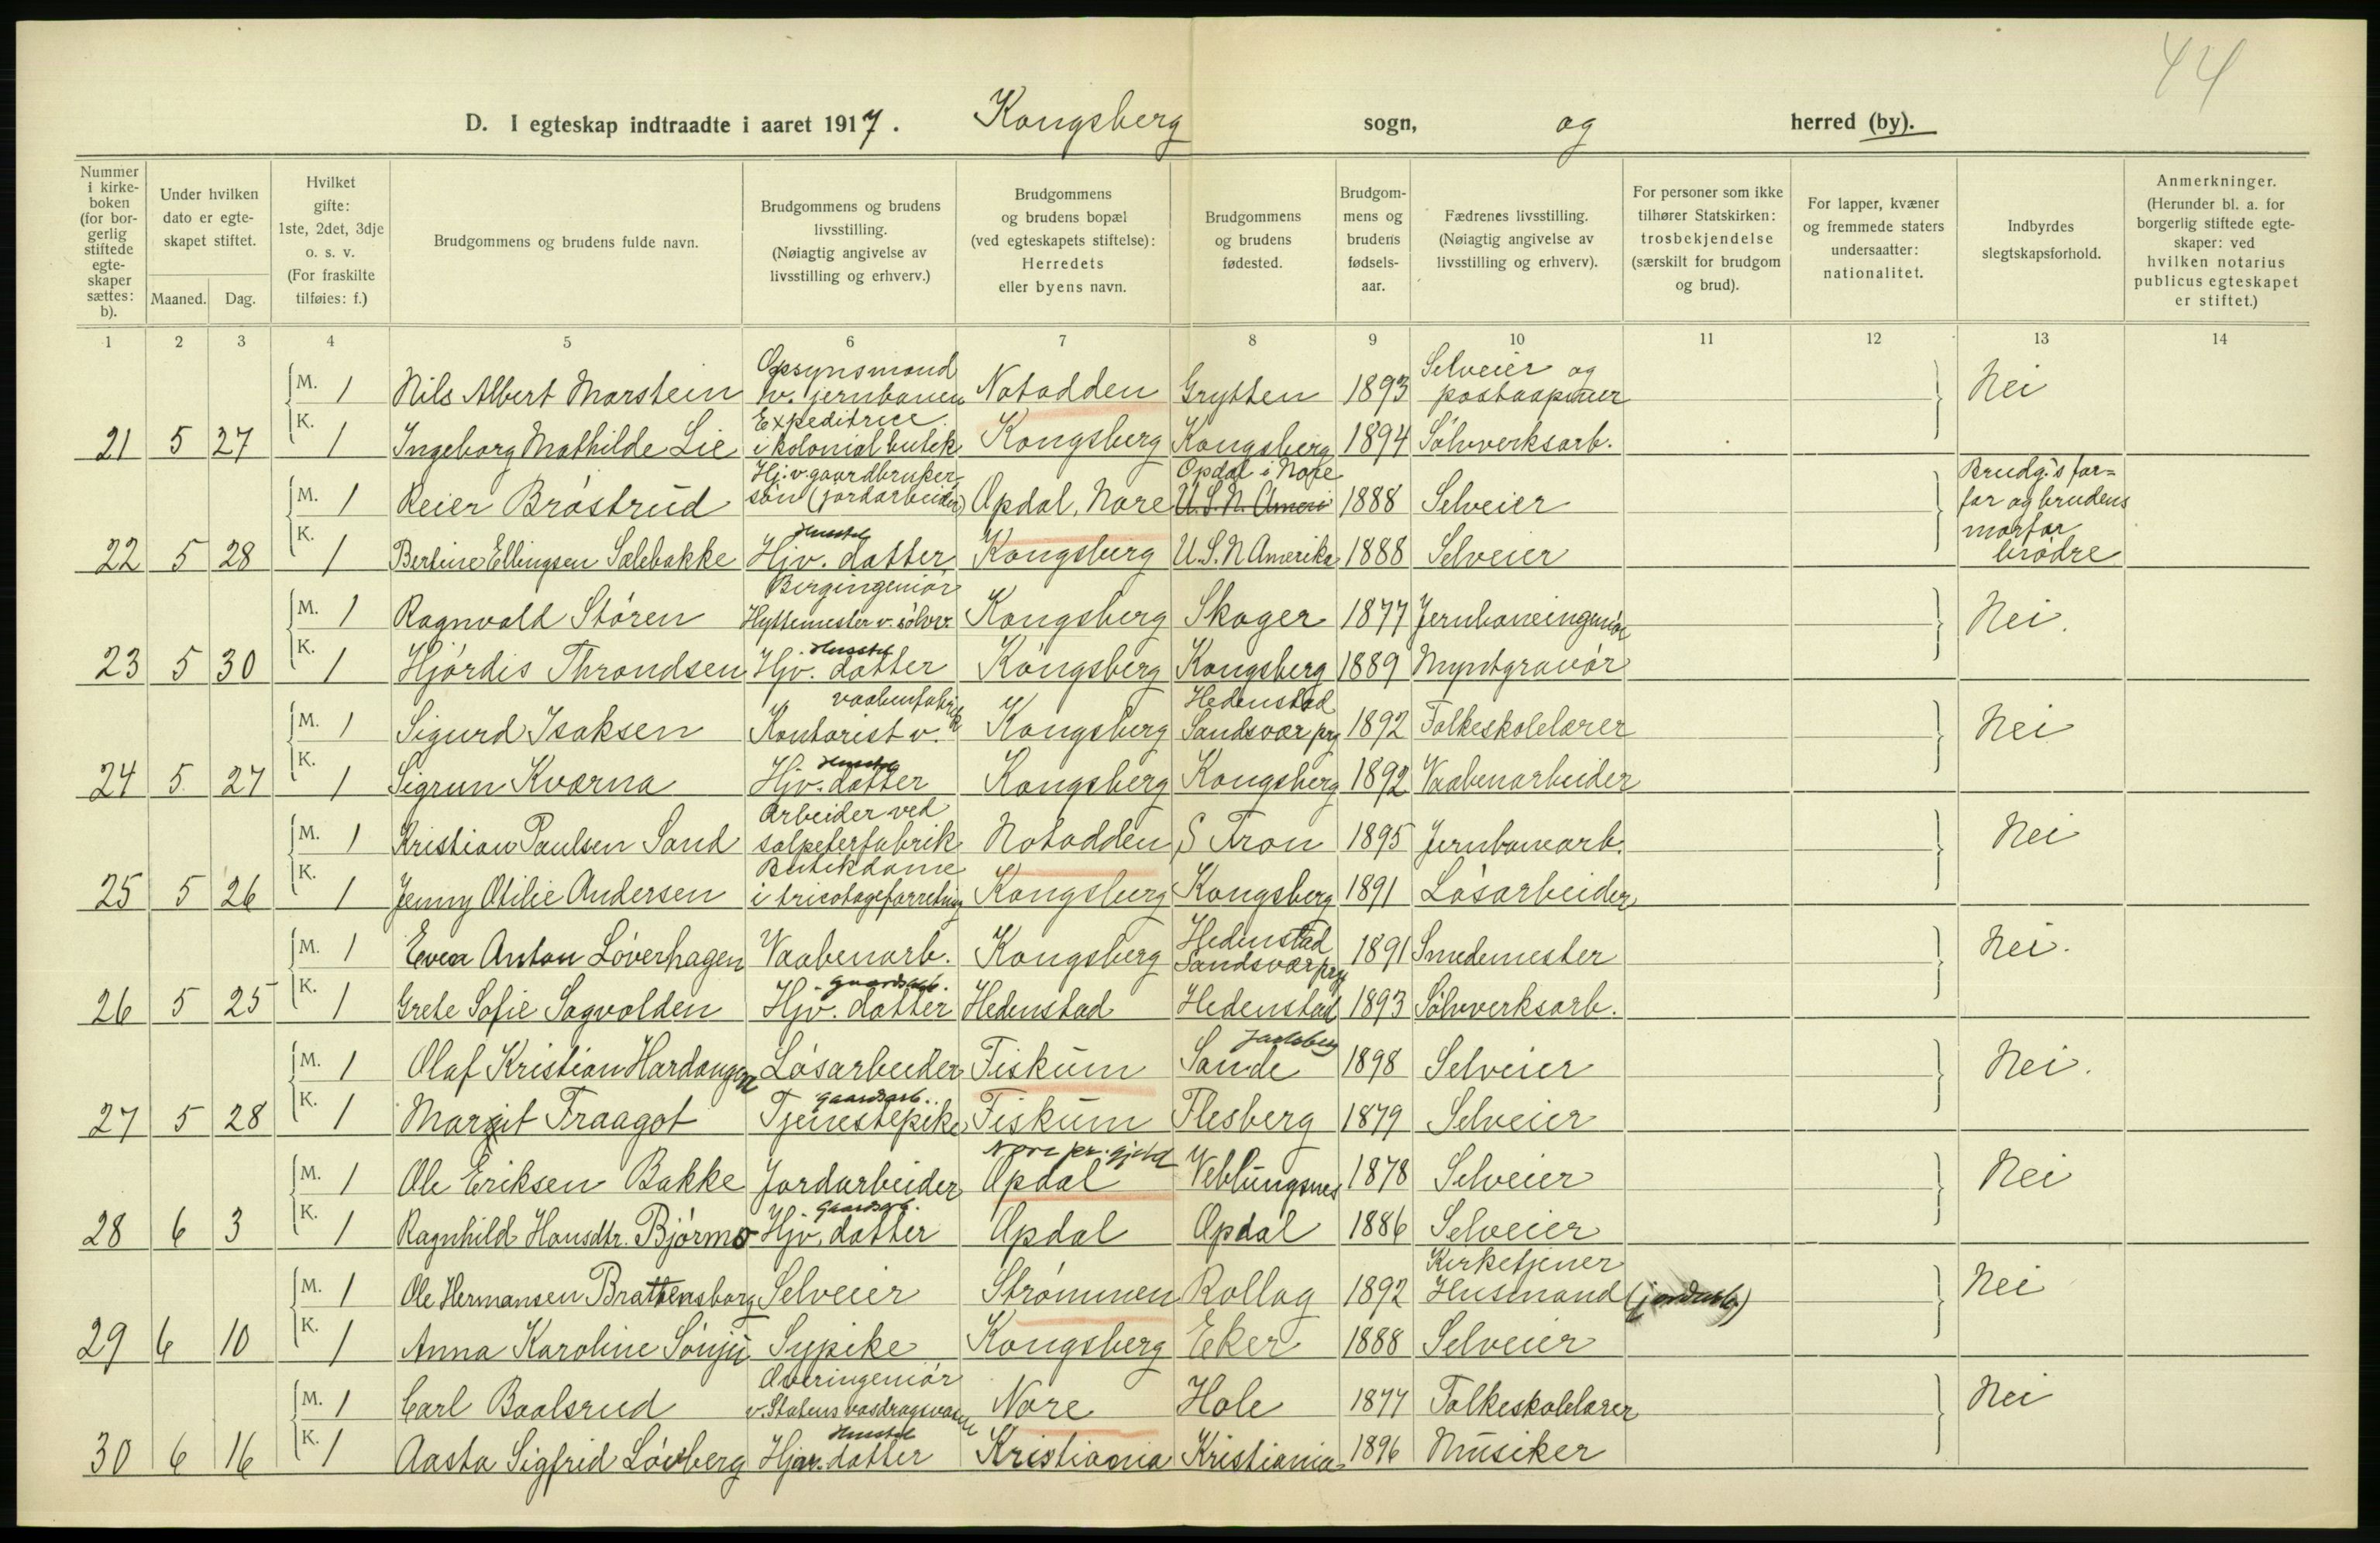 44
D. I egteskap indtraadte i aaret 1917. Kongsberg sogn, og herred (by).
Nummer i kirke-boken (for bor-gerlig stiftede egte-skaper sættes: b).
Under hvilken dato er egte-skapet stiftet.
Maaned. Dag.
Hvilket gifte: 1ste, 2det, 3dje o. s. v. (For fraskilte tilføies: f.)
Brudgommens og brudens fulde navn.
Brudgommens og brudens livsstilling. (Nøiagtig angivelse av livsstilling og erhverv.)
Brudgommens og brudens bopæl (ved egteskapets stiftelse): Herredets eller byens navn.
Brudgommens og brudens fødested.
Brudgom-mens og brudens fødsels-aar.
Fædrenes livsstilling. (Nøiagtig angivelse av livsstilling og erhverv).
For personer som ikke tilhører Statskirken: trosbekjendelse (særskilt for brudgom og brud).
For lapper, kvæner og fremmede staters undersaatter: nationalitet.
Indbyrdes slegtskapsforhold.
Anmerkninger. (Herunder bl. a. for borgerlig stiftede egte-skaper: ved hvilken notarius publicus egteskapet er stiftet.)
1 2 3 4 5 6 7 8 9 10 11 12 13 14
M. 1 Nils Albert Marstein Opsynsmand v. jernbanen Notodden Grytten 1893 Selveier og postaapner Nei
21 5 27 K. 1 Ingeborg Mathilde Lie Expeditrice i kolonialbutik Kongsberg Kongsberg 1894 Sølvverksarb.
M. 1 Reier Bråstrud Hj. v. gaardbruker søn (jordarbeider) Opdal, Nore Opdal i Nore U.S.N. Ameri 1888 Selveier Brudg.'s far=far og brudens morfar brødre
22 5 28 K. 1 Bertine Ellingsen Sælebakke Hjv. datter Husstel Kongsberg U.S.N Amerika 1888 Selveier
M. 1 Ragnvald Støren Bergingeniør Hyttemester v. sølvv. Kongsberg Skoger 1877 Jernbaneingeniør Nei.
23 5 30 K. 1 Hjørdis Throndsen Hjv. datter Husstel Kongsberg Kongsberg 1889 Myntgravør
M. 1 Sigurd Isaksen Kontorist v. vaabenfabrik Kongsberg Hedenstad Sandsvær prg 1892 Folkeskolelærer Nei
24 5 27 K. 1 Sigrun Kværna Hjv. datter Husstel Kongsberg Kongsberg 1892 Vaabenarbeider
M. 1 Kristian Paulsen Sand Arbeider ved salpeterfabrik Notodden S Fron 1895 Jernbanearb. Nei
25 5 26 K. 1 Jenny Otilie Andersen Butikdame i tricotageforretning Kongsberg Kongsberg 1891 Løsarbeider
M. 1 Even Anton Løverhagen Vaabenarb. Kongsberg Hedenstad Sandsvær prgj 1891 Smedemester Nei.
26 5 25 K. 1 Grete Sofie Sagvolden Hjv. datter gaardsarb. Hedenstad Hedenstad 1893 Sølvverksarb.
M. 1 Olaf Kristian Hardangen Løsarbeider Fiskum Sande Jarlsberg 1898 Selveier Nei.
27 5 28 K. 1 Margit Fraagot Tjenestepike gaardsarb. Fiskum Flesberg 1879 Selveier
M. 1 Ole Eriksen Bakke Jordarbeider Opdal Nore pr. gjeld Veblungsnes 1878 Selveier Nei
28 6 3 K. 1 Ragnhild Hansdtr. Bjørmo Hjv. datter gaardsarb. Opdal Opdal 1886 Selveier
M. 1 Ole Hermansen Brattensborg Selveier Strømmen Rollag 1892 Kirketjener Husmand (jordarb) Nei
29 6 10 K. 1 Anna Karoline Sønju Sypike Kongsberg Eker 1888 Selveier
M. 1 Carl Baalsrud Overingeniør v. Statens vasdragsvæsen Nore Hole 1877 Folkeskolelærer Nei
30 6 16 K. 1 Aasta Sigfrid Løvberg Hjv. datter Husstel Kristiania Kristiania 1896 Musiker